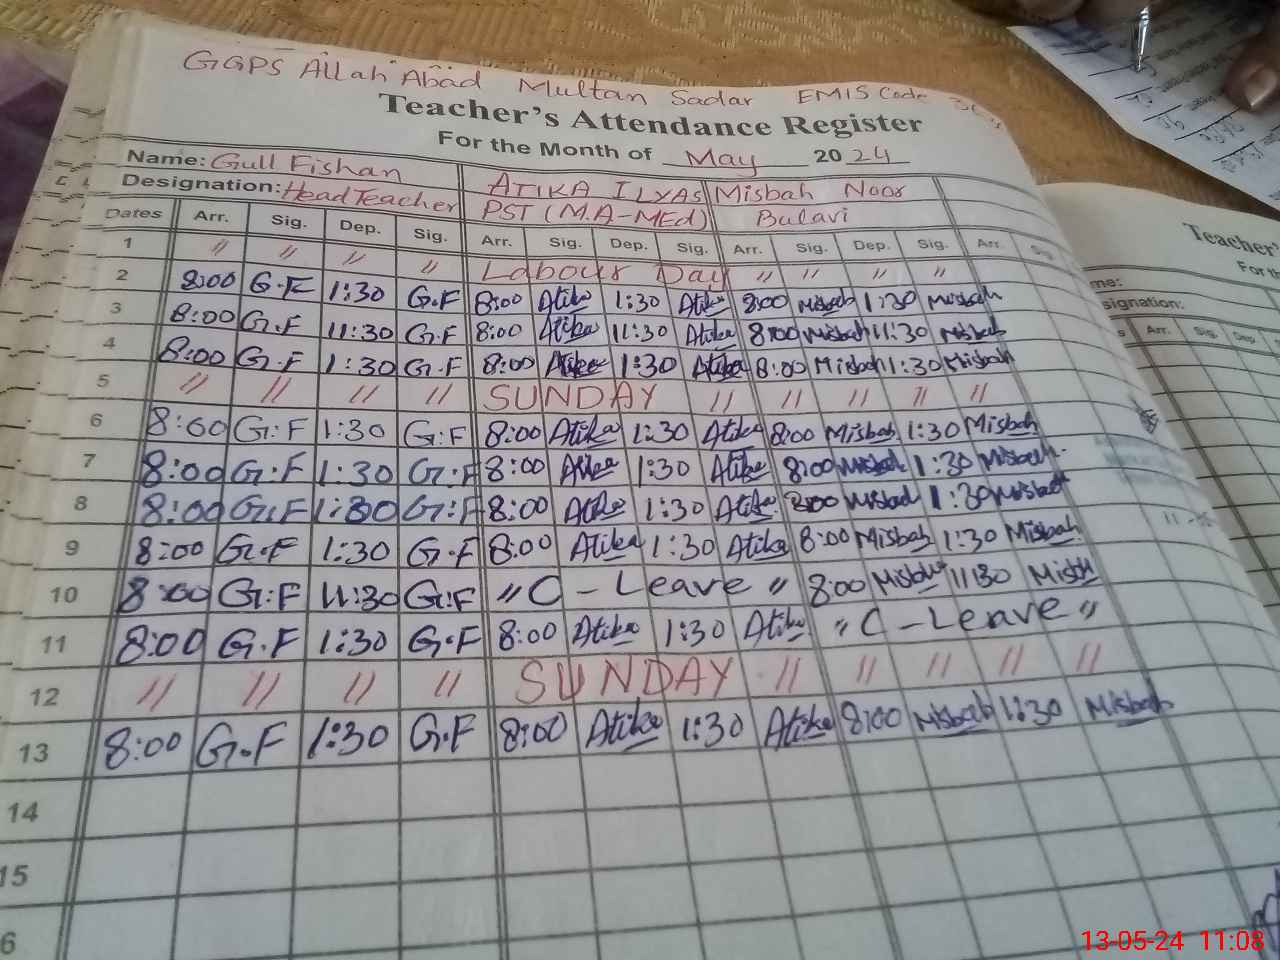 GGPS Allah Abad Multan Sadar EMIS Code
Teacher's Attendance Register
For the Month of May 2024
Name: Gull Fishan ATIKA ILYAS Misbah Noor
Designation: Head Teacher PST (M.A-MEd) Bulavi
Dates Arr. Sig. Dep. Sig. Arr. Sig. Dep. Sig. Arr. Sig. Dep. Sig. Arr. Sig.
1 " " " " Labour Day " " " "
2 8:00 G.F 1:30 G.F 8:00 Atika 1:30 Atika 8:00 Misbah 1:30 Misbah
3 8:00 G.F 11:30 G.F 8:00 Atika 11:30 Atika 8:00 Misbah 11:30 Misbah
4 8:00 G.F 1:30 G.F 8:00 Atika 1:30 Atika 8:00 Misbah 1:30 Misbah
5 " " " " SUNDAY " " " " "
6 8:00 G:F 1:30 G:F 8:00 Atika 1:30 Atika 8:00 Misbah 1:30 Misbah
7 8:00 G:F 1:30 G:F 8:00 Atika 1:30 Atika 8:00 Misbah 1:30 Misbah
8 8:00 G:F 1:30 G:F 8:00 Atika 1:30 Atika 8:00 Misbah 1:30 Misbah
9 8:00 G.F 1:30 G.F 8:00 Atika 1:30 Atika 8:00 Misbah 1:30 Misbah
10 8:00 G:F 11:30 G:F " C - Leave " 8:00 Misbah 11:30 Misbah
11 8:00 G.F 1:30 G.F 8:00 Atika 1:30 Atika " C - Leave "
12 " " " " SUNDAY " " " " "
13 8:00 G.F 1:30 G.F 8:00 Atika 1:30 Atika 8:00 Misbah 1:30 Misbah
14
15
6
Teacher'
For th
me:
signation:
Arr. Sig. Dep.
13-05-24 11:08